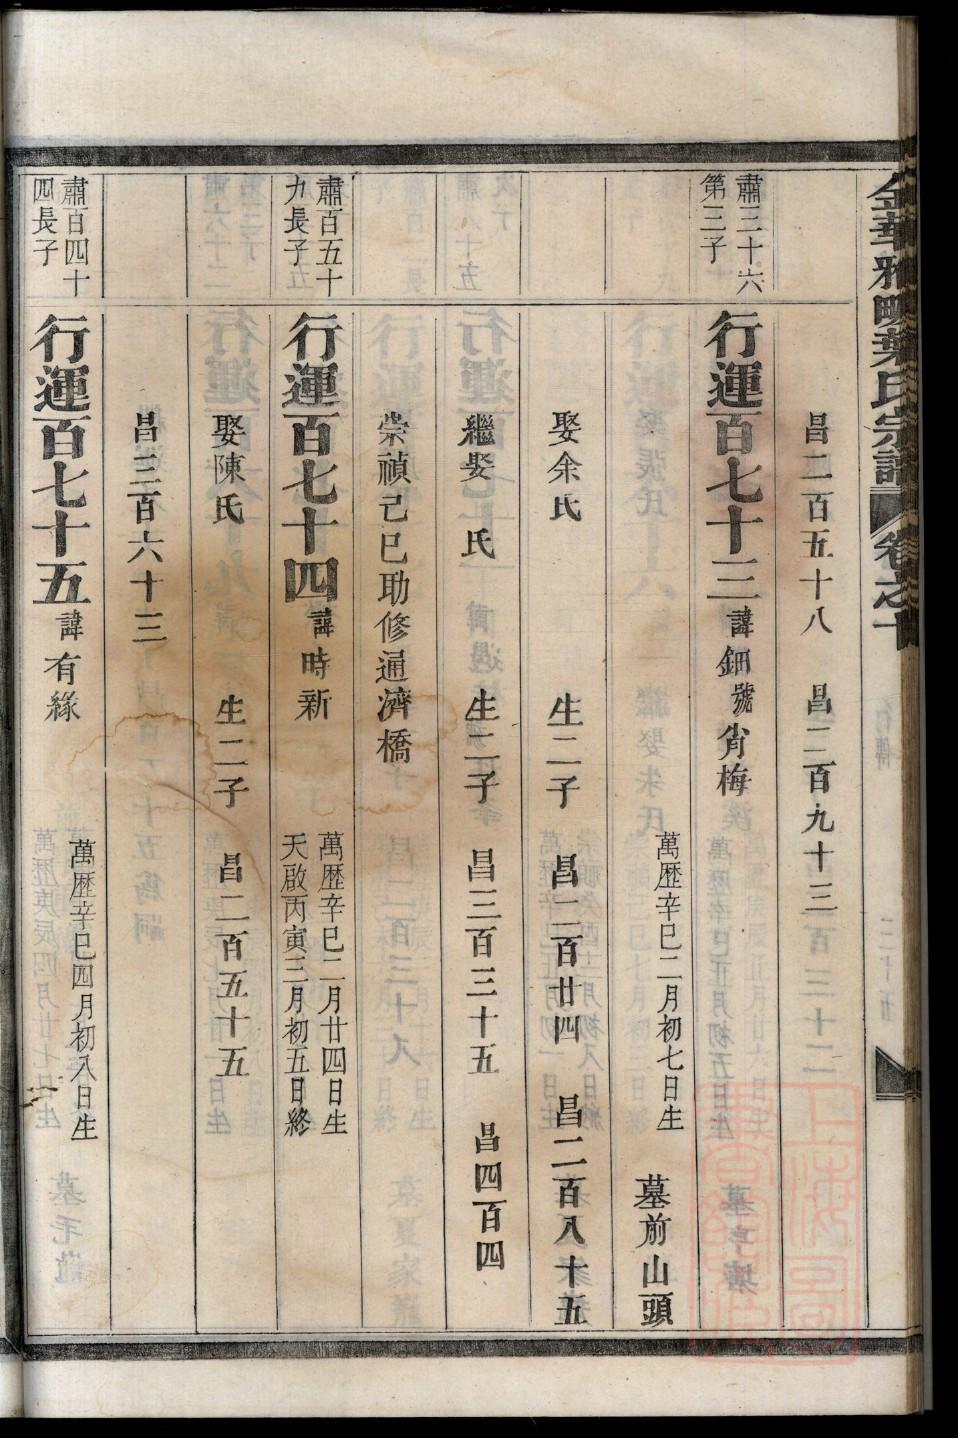 金華雅畈葉氏宗譜 卷之十
昌二百五十八 昌二百九十三
肅三十六第三子
行運百七十三 諱鈿號肖梅 萬歷辛巳二月初七日生
墓前山頭
娶余氏 生二子 昌二百廿四 昌二百八十五
繼娶 氏 生二子 昌三百三十五 昌四百四
崇禎己巳助修通濟橋
肅百五十九長子
行運百七十四 諱時新 萬歷辛巳二月廿四日生
天啟丙寅三月初五日終
娶陳氏 生二子 昌二百五十五
昌三百六十三
肅百四十四長子
行運百七十五 諱有緣 萬歷辛巳四月初八日生